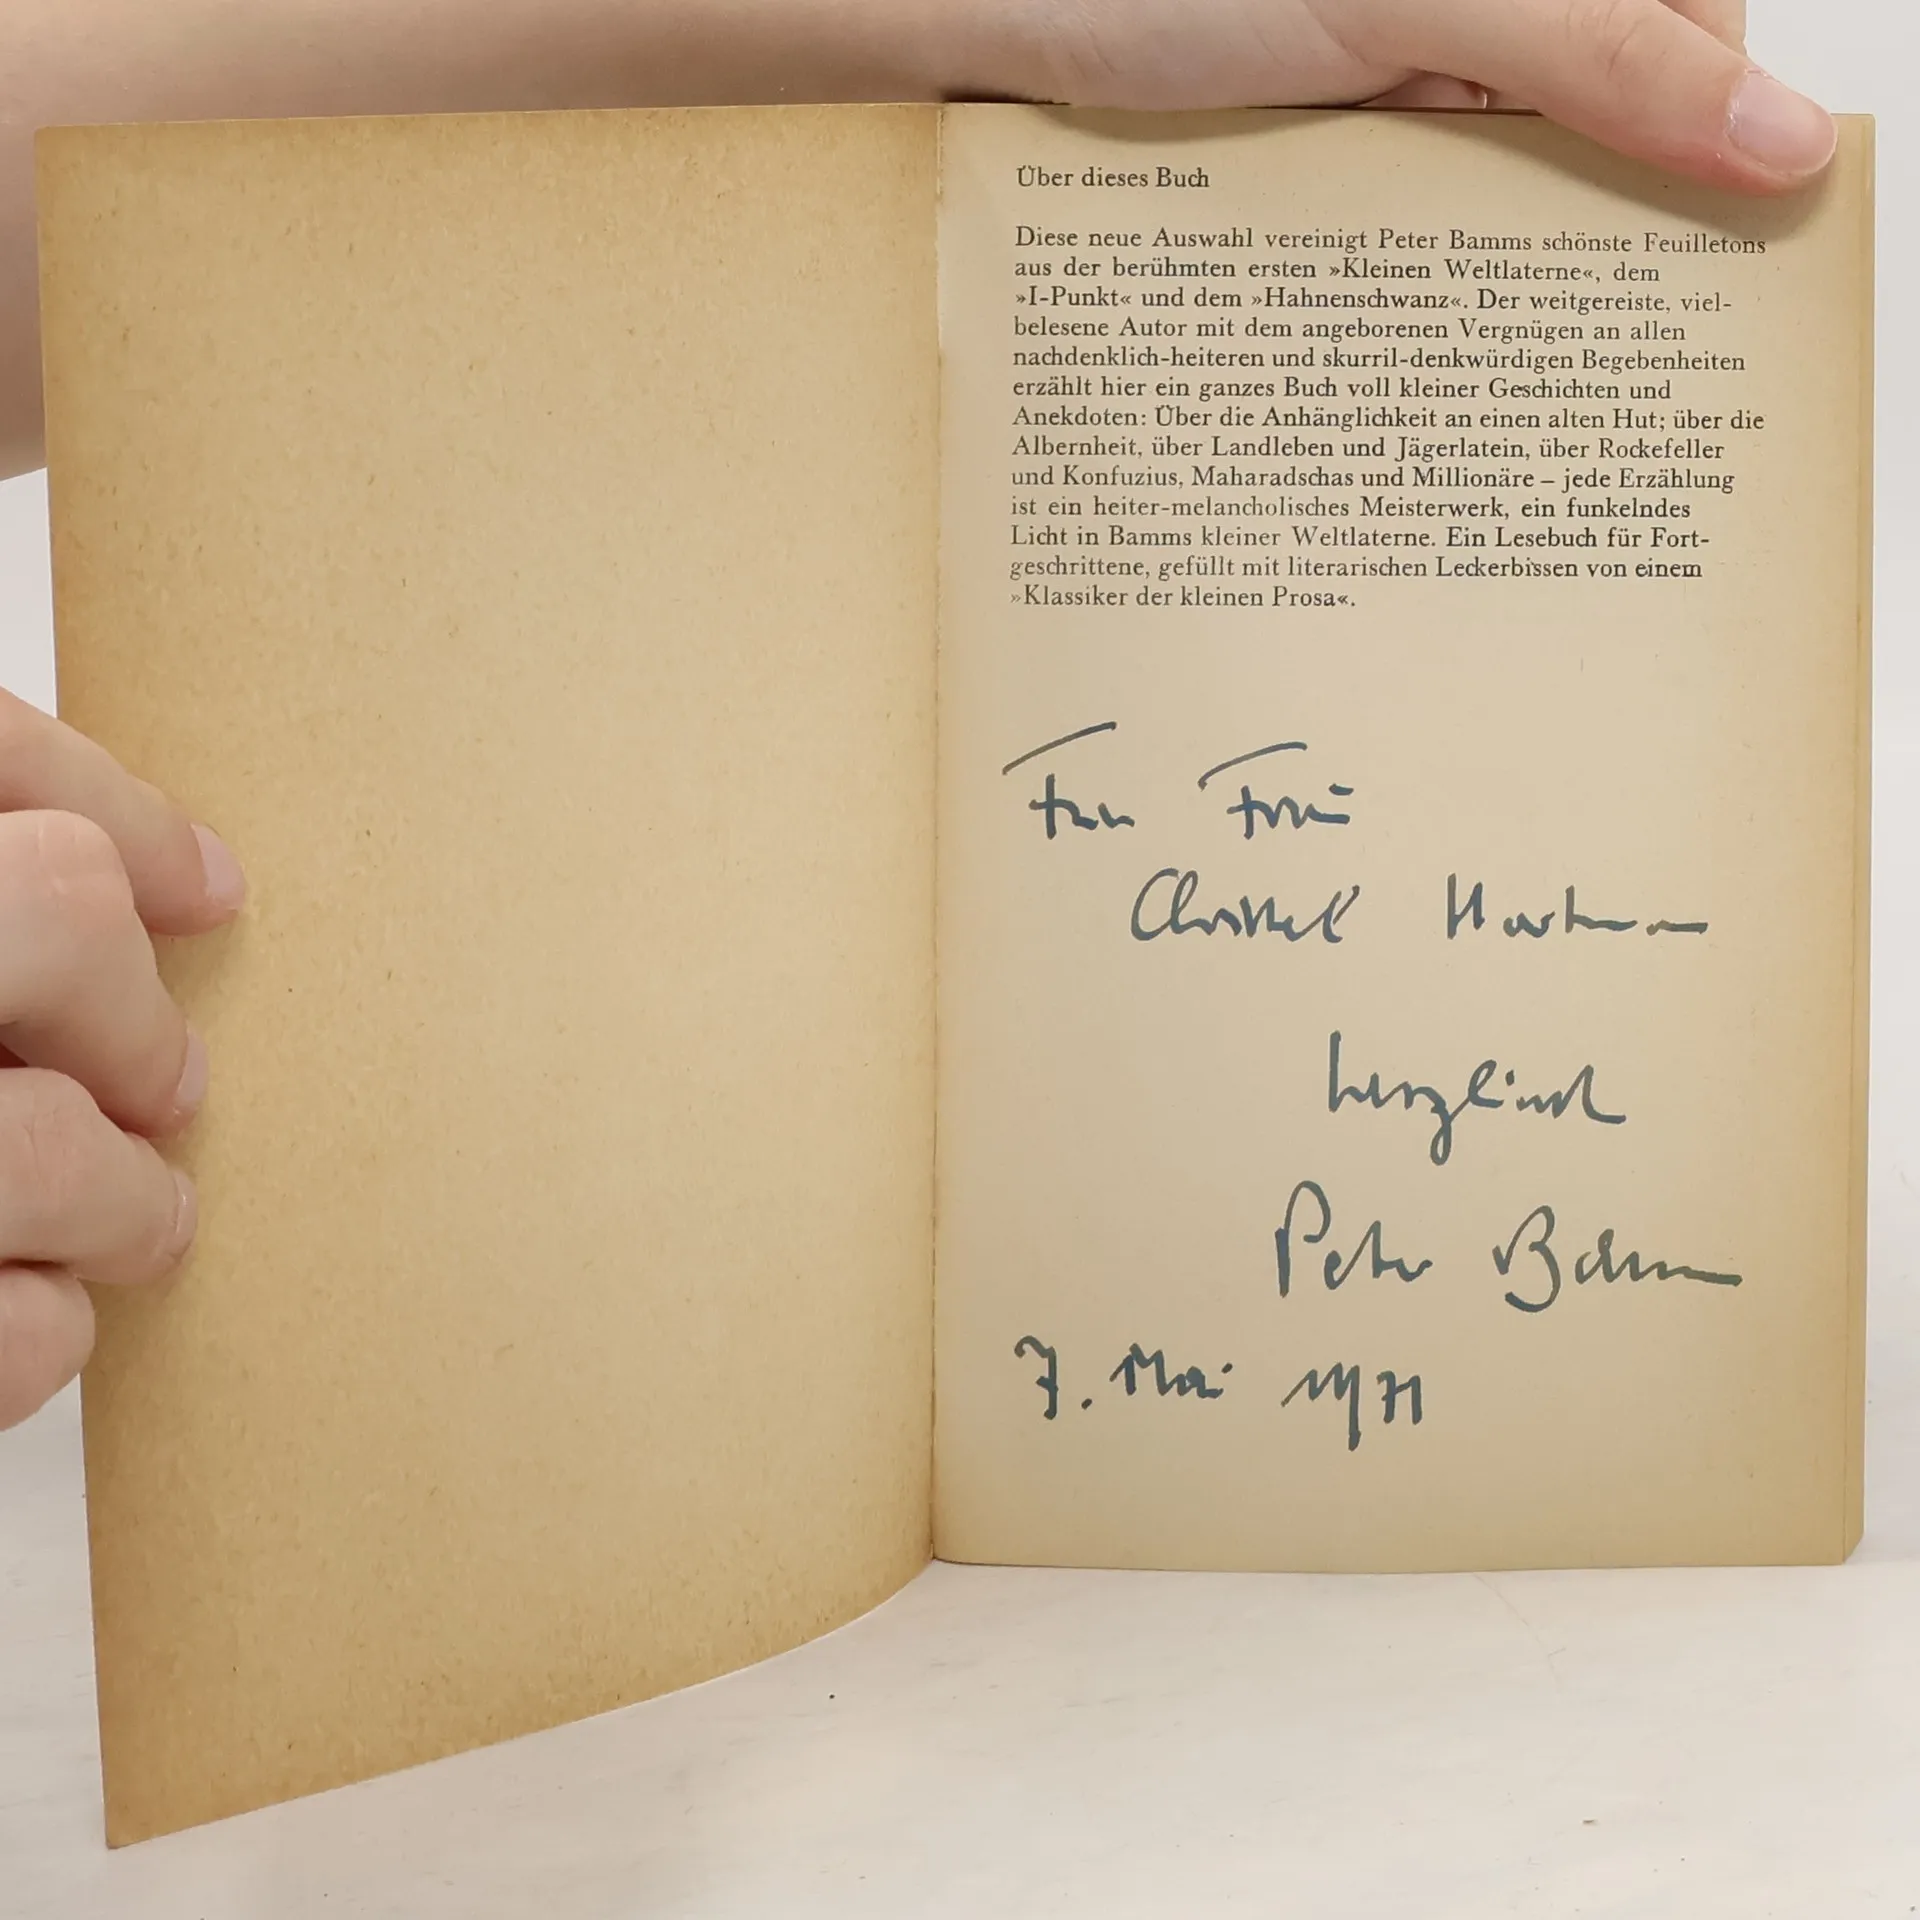 Über dieses Buch
Diese neue Auswahl vereinigt Peter Bamms schönste Feuilletons
aus der berühmten ersten »Kleinen Weltlaterne«, dem
»I-Punkt« und dem »Hahnenschwanz«. Der weitgereiste, viel-
belesene Autor mit dem angeborenen Vergnügen an allen
nachdenklich-heiteren und skurril-denkwürdigen Begebenheiten
erzählt hier ein ganzes Buch voll kleiner Geschichten und
Anekdoten: Über die Anhänglichkeit an einen alten Hut; über die
Albernheit, über Landleben und Jägerlatein, über Rockefeller
und Konfuzius, Maharadschas und Millionäre – jede Erzählung
ist ein heiter-melancholisches Meisterwerk, ein funkelndes
Licht in Bamms kleiner Weltlaterne. Ein Lesebuch für Fort-
geschrittene, gefüllt mit literarischen Leckerbissen von einem
»Klassiker der kleinen Prosa«.
Christel
herzlich
Peter Bamm
7. Mai 1971